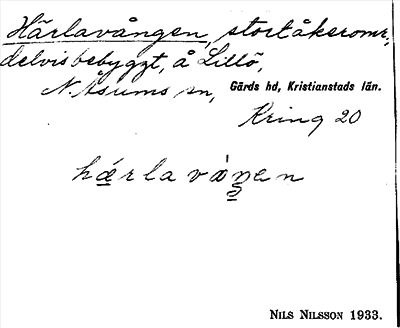 Härlavången, stort åkeromr,
delvis bebyggt, å Lillö,
N. Åsums sn, Gärds hd, Kristianstads län.
Kring 20
hǽrla vá̀ŋen
NILS NILSSON 1933.